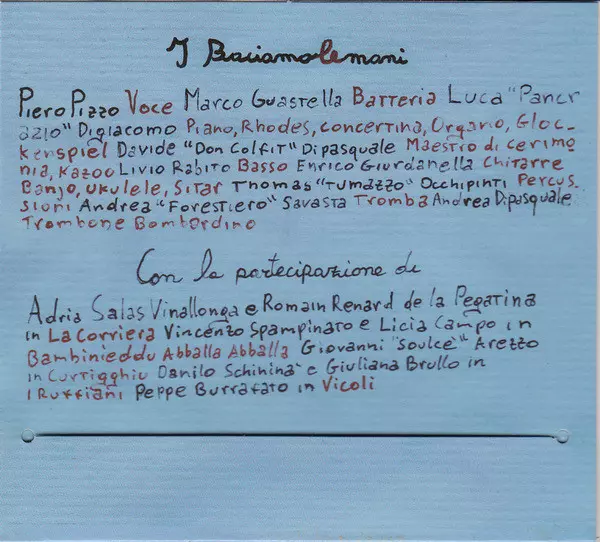 I Baciamolemani
Piero Pizzo Voce Marco Guastella Batteria Luca "Pancr
azio" Digiacomo Piano, Rhodes, concertina, Organo, Gloc-
kenspiel Davide "Don Colfit" Dipasquale Maestro di cerimo
nia, Kazoo Livio Rabito Basso Enrico Giurdanella Chitarre
Banjo, ukulele, Sitar Thomas "Tumazzo" Occhipinti Percus.
sioni Andrea "Forestiero" Savasta Tromba Andrea Dipasquale
Trombone Bombardino
Con la partecipazione di
Adria Salas Vinallonga e Romain Renard de la Pegatina
in La Corriera Vincenzo Spampinato e Licia Campo in
Bambinieddu Abballa Abballa Giovanni "Soulcè" Arezzo
in Curtigghiu Danilo Schininà e Giuliana Brullo in
I Ruffiani Peppe Burrafato in Vicoli